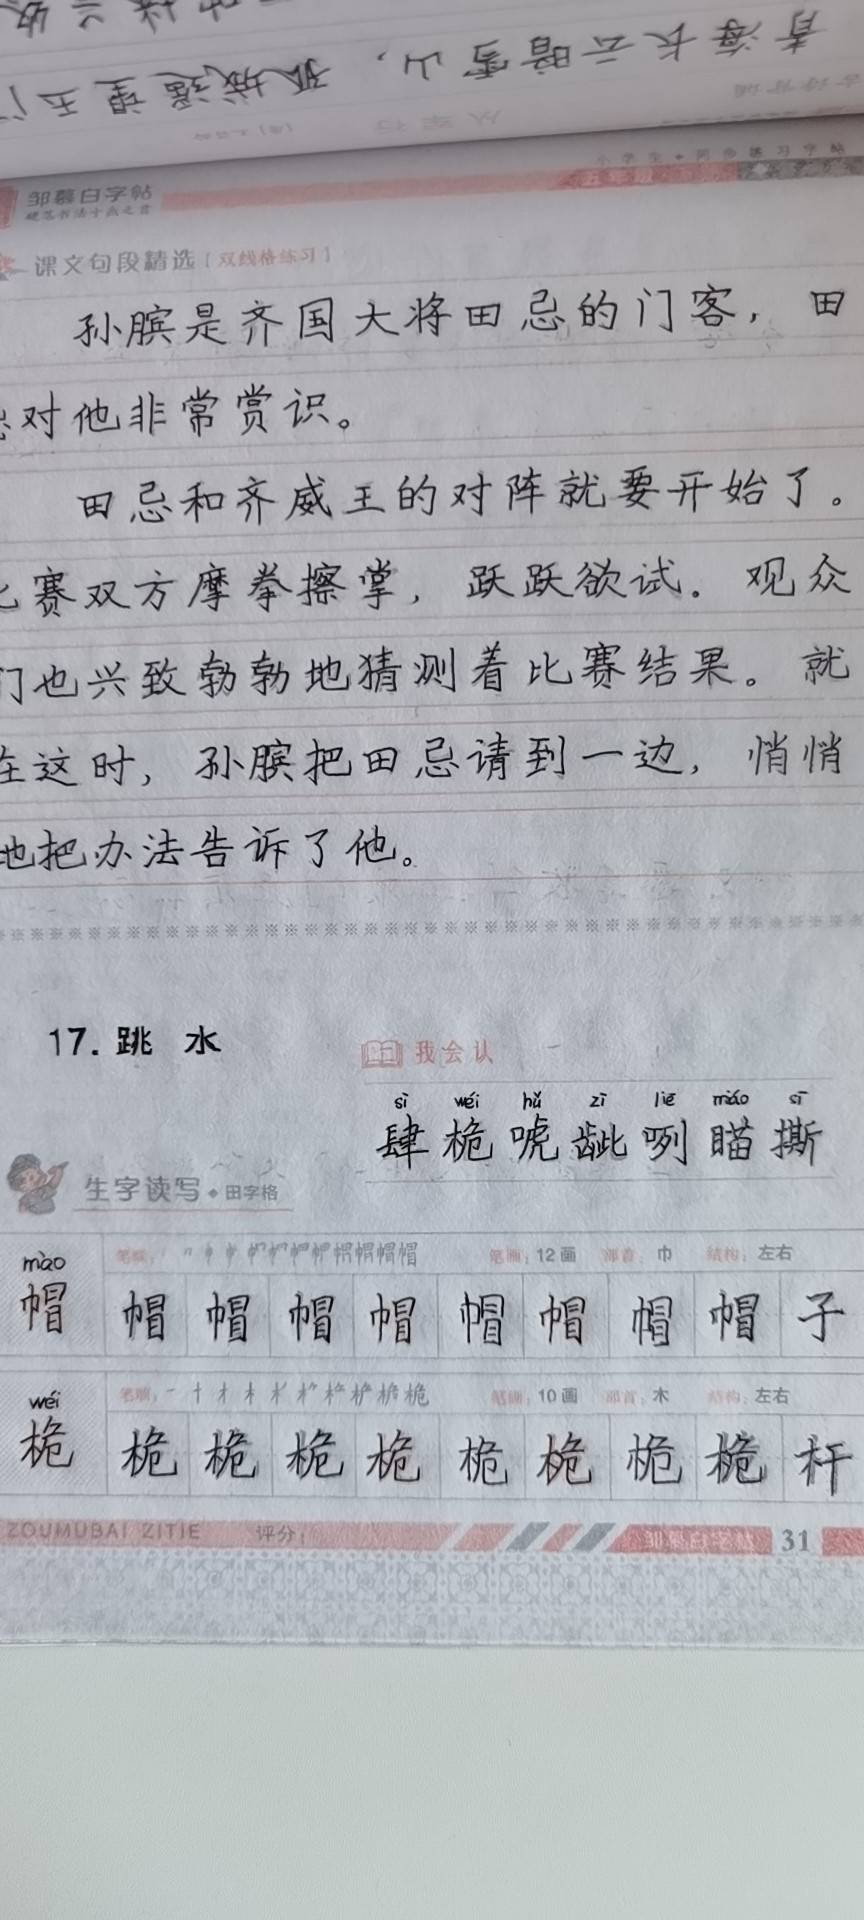 青海长云暗雪山，孤城遥望玉门
从军行
小学生·同步练习字帖
邹慕白字帖
硬笔书法十杰之首
五年级
课文句段精选［双线格练习］
孙膑是齐国大将田忌的门客，田
忌对他非常赏识。
田忌和齐威王的对阵就要开始了。
比赛双方摩拳擦掌，跃跃欲试。观众
们也兴致勃勃地猜测着比赛结果。就
在这时，孙膑把田忌请到一边，悄悄
地把办法告诉了他。
17. 跳 水
我会认
sì wéi hǔ zī liē miáo sī
肆 桅 唬 龇 咧 瞄 撕
生字读写·田字格
mào
笔顺： 笔画：12画 部首：巾 结构：左右
帽 帽 帽 帽 帽 帽 帽 帽 帽 子
wéi
笔顺： 笔画：10画 部首：木 结构：左右
桅 桅 桅 桅 桅 桅 桅 桅 桅 杆
ZOUMUBAI ZITIE 评分： 邹慕白字帖 31